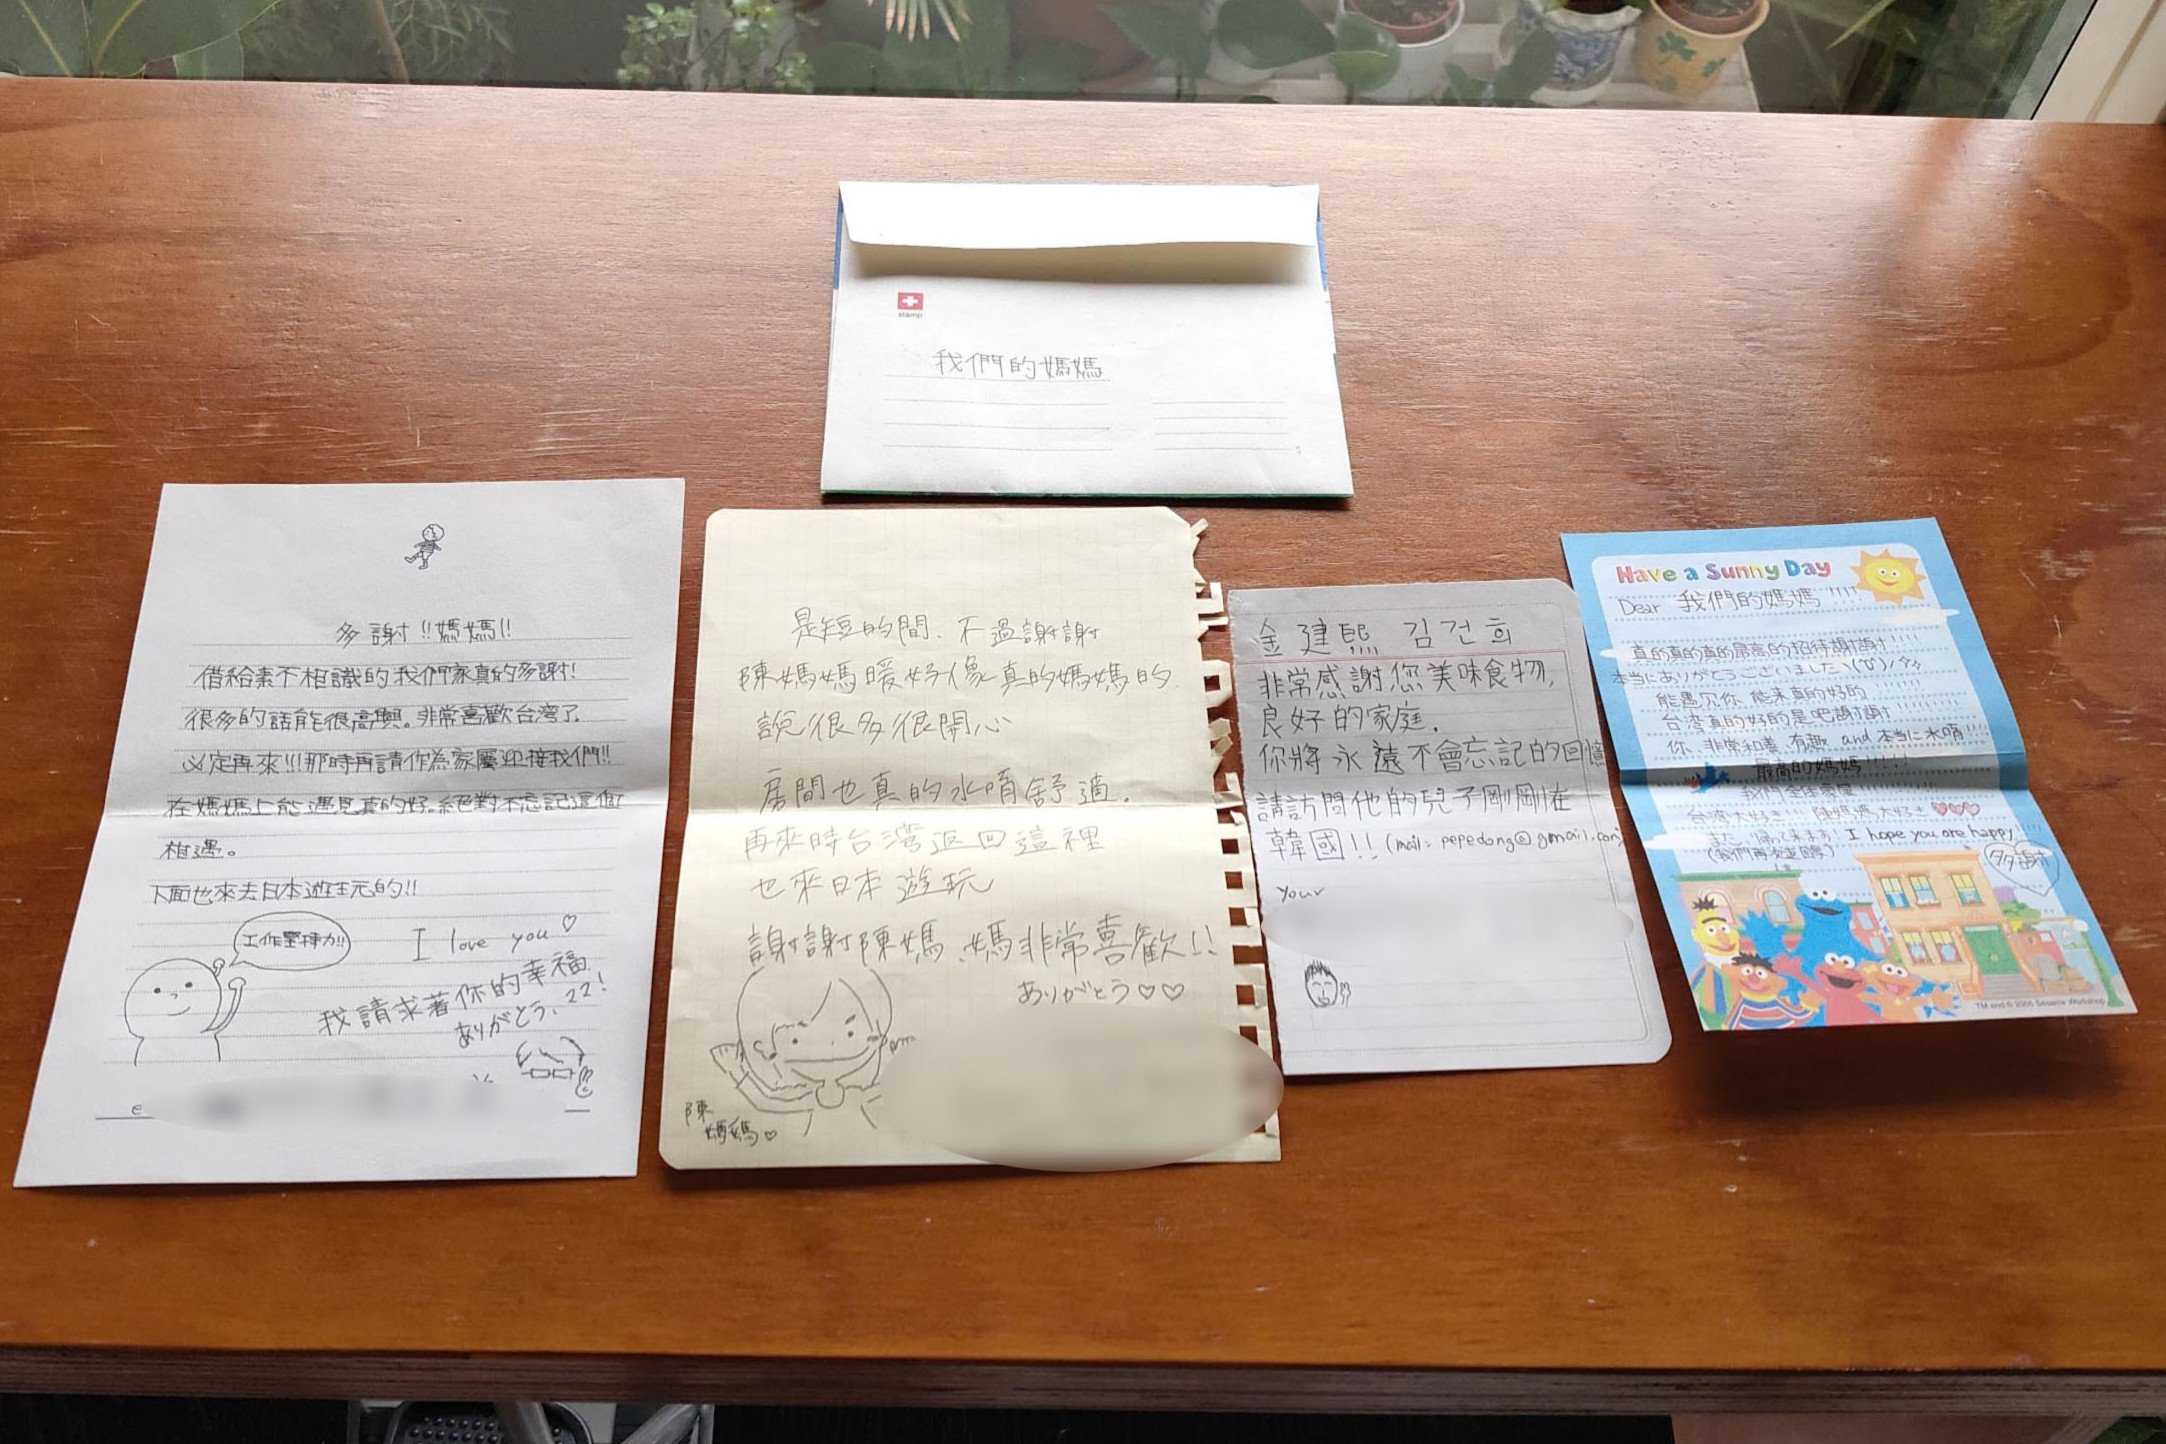 stamp
我們的媽媽
多謝!!媽媽!!
借給素不相識的我們家真的多謝!
很多的話能很高興。非常喜歡台湾了。
必定再來!!!那時再請作為家屬迎接我們!!
在媽媽上能遇見真的好。絕對不忘記這個
相遇。
下面也來去日本遊玩的!!
工作堅持力!!
I love you♡
我請求著你的幸福
ありがとう、22!
是短的間、不過謝謝
陳媽媽暖好像真的媽媽的.
說很多很開心
房間也真的水唷舒適。
再來時台湾返回這裡
也來日本遊玩
謝謝陳媽媽非常喜歡!!
ありがとう♡♡
陳
媽媽♡
金建熙 김건희
非常感謝您美味食物,
良好的家庭.
你將永遠不會忘記的回憶
請訪問他的兒子剛剛在
韓國!! (mail: pepedong@gmail.com)
your
Have a Sunny Day
Dear 我們的媽媽!!!!
真的真的真的最高的招待謝謝!!!!
本当にありがとうございました
能遇見你、能来真的好的!!!!!!
台湾真的好的是吧謝謝!!!!!!
你、非常和善、有趣 and 本当に水唷!!!!
最高的媽媽!!!!!
我們全体家屬!!!!!!!!!!!
台湾大好き!!! 陳媽媽大好き♡♡♡
また、帰ってきます! I hope you are happy!!!!
(我們再次返回家)
多謝
TM and © 2005 Sesame Workshop